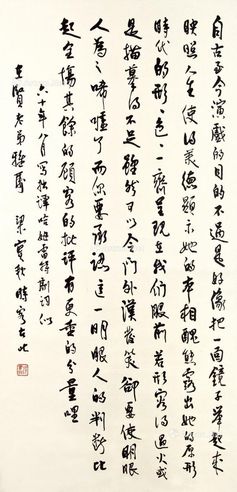 自古至今演戲的目的不過是好像把一面鏡子舉起來
映照人生使得美德顯示她的本相醜態露出她的原形
時代的形形色色一齊呈現在我們眼前若形容得過火或
是描摹得不足雖然可以令門外漢發笑卻要使明眼
人為之唏噓了而你要承認這一明眼人的判斷比
起全場其餘的顧客的批評有更重的分量哩
六十年八月寫拙譯哈姆雷特劇詞似
至賢老弟雅屬 梁實秋時客台北